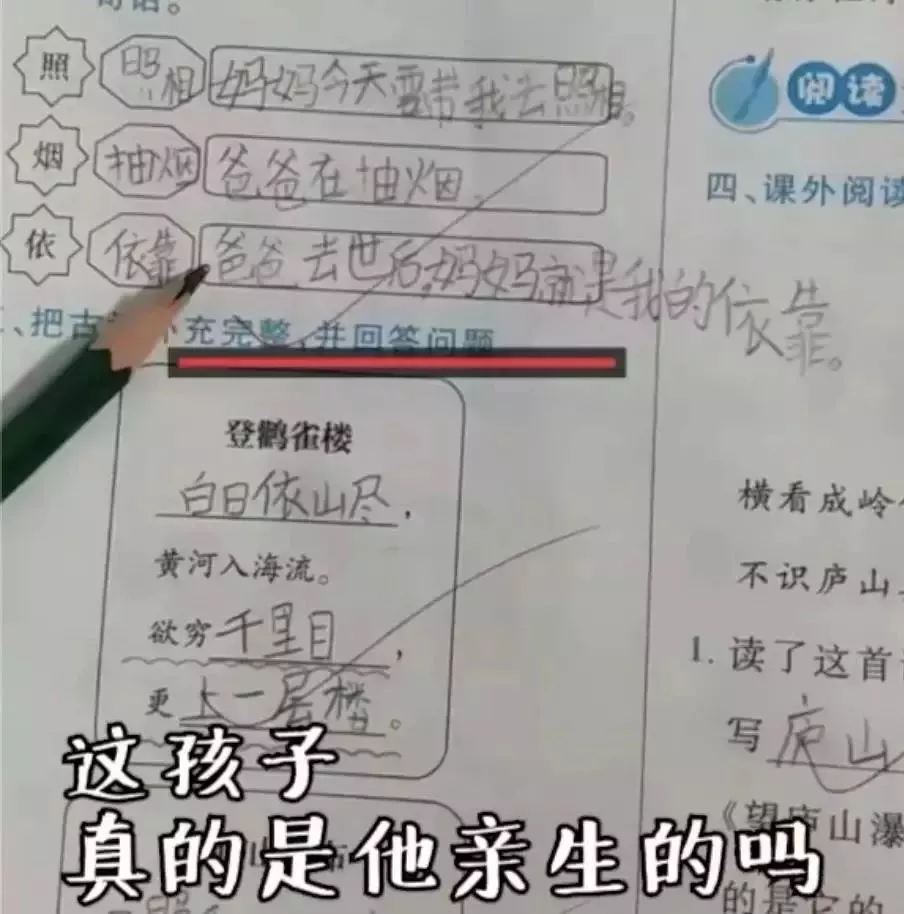 句话。
照 照相 妈妈今天要带我去照相。
烟 抽烟 爸爸在抽烟.
依 依靠 爸爸去世后,妈妈就是我的依靠。
把古 补充完整,并回答问题
登鹳雀楼
白日依山尽,
黄河入海流。
欲穷千里目,
更上一层楼。
阅读
四、课外阅读
横看成岭
不识庐山
1. 读了这首
写庐山
《望庐山瀑
的是它的
这孩子
真的是他亲生的吗